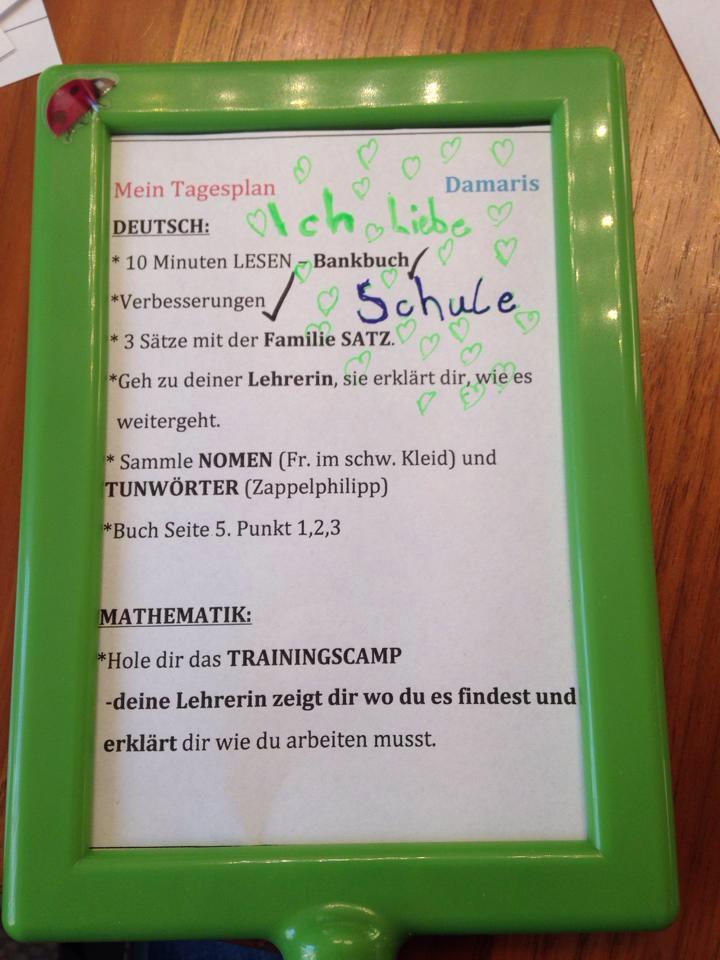 Mein Tagesplan Damaris
DEUTSCH: Ich Liebe
* 10 Minuten LESEN – Bankbuch
*Verbesserungen Schule
* 3 Sätze mit der Familie SATZ.
*Geh zu deiner Lehrerin, sie erklärt dir, wie es
weitergeht.
* Sammle NOMEN (Fr. im schw. Kleid) und
TUNWÖRTER (Zappelphilipp)
*Buch Seite 5. Punkt 1,2,3
MATHEMATIK:
*Hole dir das TRAININGSCAMP
-deine Lehrerin zeigt dir wo du es findest und
erklärt dir wie du arbeiten musst.